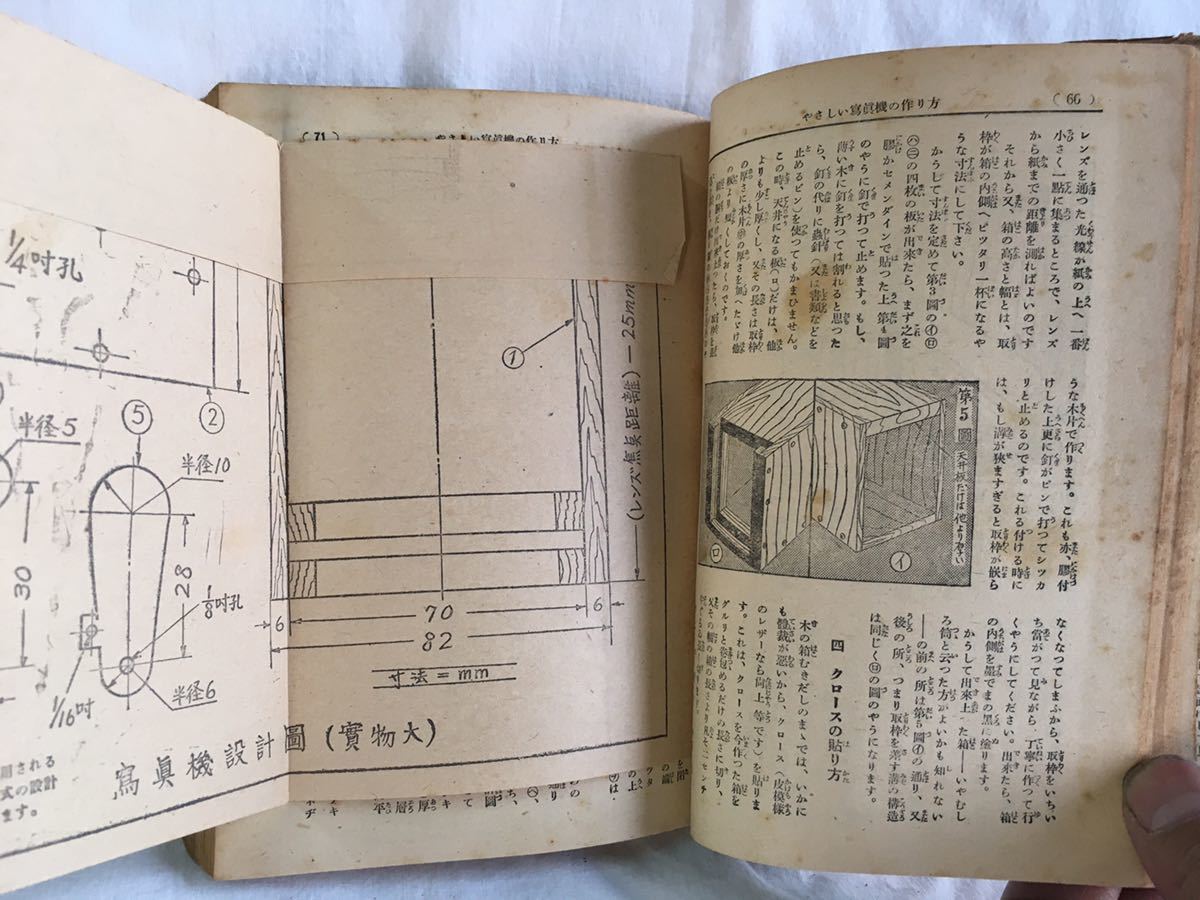 ( 66 )
やさしい寫眞機の作り方
レンズを通つた光線が紙の上へ一番
小さく一點に集まるところで、レンズ
から紙までの距離を測ればよいのです
それから又、箱の高さと幅とは、取
枠が箱の内側へピツタリ一杯になるや
うな寸法にして下さい。
かうして寸法を定めて第3圖の㋑㋺
㋩㊁の四枚の板が出來たら、まず之を
膠かセメンダインで貼つた上第4圖
のやうに釘で打つて止めます。もし、
薄い木に釘を打つては割れると思つた
ら、釘の代りに蟲針(又は書類などを
止めるピン)を使つてもかまひません。
この時、天井になる板(ロ)だけは、他
よりも少し厚くし、又その長さは取枠
うな木片で作ります。これも亦、膠付
けした上更に釘がピンで打つてシツカ
リと止めるのです。これを付ける時に
は、もし溝が狹ますぎると取枠が嵌ら
第5圖
天井板だけは他より厚い
㋺
㋑
なくなつてしまふから、取枠をいちい
ち當がつて見ながら、丁寧に作つて行
くやうにしてください。出來たら、箱
の内側を墨でまの黒に塗ります。
かうして出來上つた箱――いやむし
ろ筒と云つた方がよいかも知れない
――の前の所は第5圖㋑の通り、又
後の所、つまり取枠を差す溝の構造
は同じく㋺の圖のやうになります。
四 クロースの貼り方
木の箱むきだしのまゝでは、いかに
も體裁が惡いから、クロース(皮模樣
のレザーなら尚上等です)を貼りま
す。これは、クロースを今作つた箱を
グルリと卷包めるだけの長さに切り、
( 71 )
やさしい寫眞機の作り方
①
(レンズ焦点距離)－25mm
70
6
6
82
寸法＝mm
寫眞機設計圖(實物大)
1/4吋孔
②
半径5
⑤
半径10
30
28
1/8吋孔
半径6
1/16吋
用される
式の設計
ます。